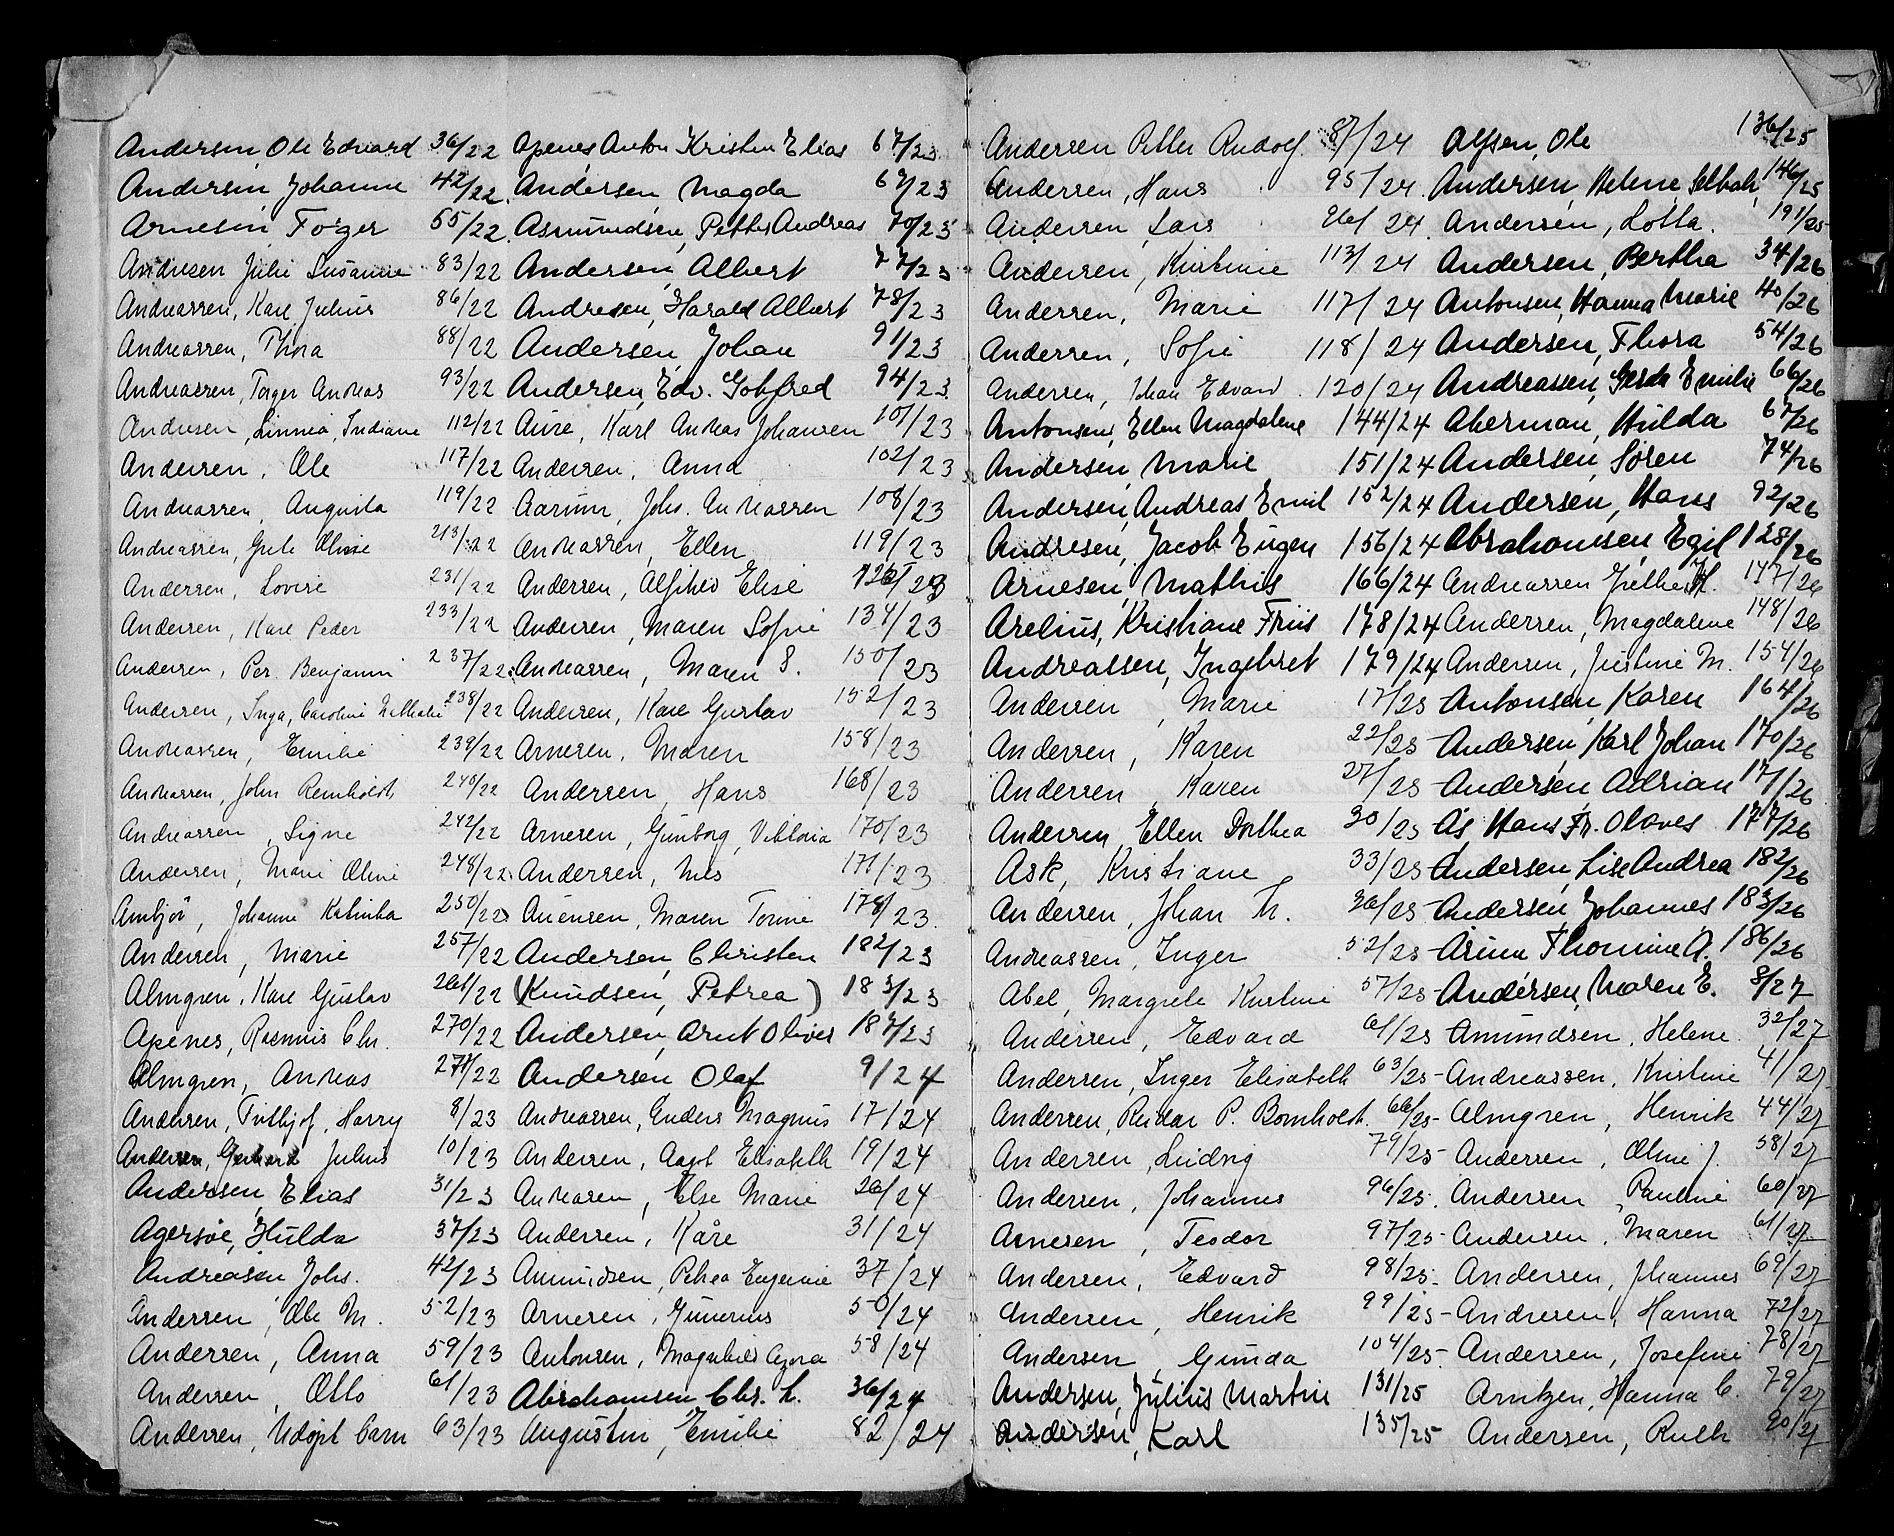 Andersen, Ole Edvard 36/22
Andersen, Johanne 42/22
Arnesen, Torger 55/22
Andresen Julie Susanne 83/22
Andreassen, Karl Julius 86/22
Andreassen, Thora 88/22
Andreassen, Torger Andreas 93/22
Andresen, Linnea, Indiane 112/22
Andersen, Ole 117/22
Andreassen, Augusta 119/22
Andreassen, Grete Oline 213/22
Andersen, Lovise 231/22
Andersen, Karl Peder 233/22
Andersen, Per Benjamin 237/22
Andersen, Inga, Caroline Nathalie 238/22
Andreassen, Emilie 239/22
Andreassen, John Reinholdt 240/22
Andreassen, Signe 242/22
Andersen, Marie Oline 248/22
Ambjør, Johanne Katinka 250/22
Andersen, Marie 257/22
Almgren, Karl Gustav 261/22
Apenes, Rasmus Chr. 270/22
Almgren, Andreas 271/22
Andersen, Frithjof, Harry 8/23
Andersen, Gerhard Julius 10/23
Andersen, Elias 31/23
Agersøe, Hulda 37/23
Andreasen Johs. 42/23
Andersen, Ole M. 52/23
Andersen, Anna 59/23
Andersen, Otto 61/23
Andersen, Udøpt barn 63/23
Apenes, Anton Kristen Elias 67/23
Andersen, Magda 69/23
Asmundsen, Petter Andreas 70/23
Andersen, Albert 77/23
Andresen, Harald Albert 78/23
Andersen, Johan 91/23
Andersen, Edv. Gotfred 94/23
Aure, Karl Andreas Johansen 101/23
Andersen, Anna 102/23
Aarum, Johs. Andreassen 108/23
Andreassen, Ellen 119/23
Andersen, Alfhild Elise 126/23
Andersen, Maren Sofie 134/23
Andreassen, Maren S. 150/23
Andersen, Karl Gustav 152/23
Arnesen, Maren 158/23
Andersen, Hans 168/23
Arnesen, Gunborg, Viktoria 170/23
Andersen, Nils 171/23
Auensen, Maren Tomine 178/23
Andersen, Christen 182/23
(Knudsen, Petrea) 183/23
Andersen, Arnt Oliver 187/23
Andersen, Olaf 9/24
Andreassen, Enders Magnus 17/24
Andersen, Aagot Elisabeth 19/24
Andreasen, Else Marie 26/24
Andersen, Kåre 31/24
Amundsen, Petrea Eugenie 37/24
Arnesen, Gunerius 50/24
Antonsen, Magnhild Agora 58/24
Abrahamsen, Chr. L. 36/24
Augustin, Emilie 82/24
Andersen Petter Rudolf. 87/24
Andersen, Hans 95/24
Andersen, Lars 96/24
Andersen, Kristine 113/24
Andersen, Marie 117/24
Andersen, Sofie 118/24
Andersen, Johan Edvard 120/24
Antonsen, Ellen Magdalene 144/24
Andersen, Marie 151/24
Andersen, Andreas Emil 152/24
Andresen, Jacob Eugen 156/24
Arnesen, Mathis 166/24
Arelius, Kristiane Friis 178/24
Andreassen, Ingebret 179/24
Andersen, Marie 17/25
Andersen, Karen 22/25
Andersen, Karen 27/25
Andersen, Ellen Dorthea 30/25
Ask, Kristiane 33/25
Andersen, Johan Th. 36/25
Andreassen, Inger 52/25
Abel, Margrete Kirstine 57/25
Andersen, Edvard 61/25
Andersen, Inger Elisabeth 63/25
Andersen, Reidar P. Bomholt. 66/25
Andersen, Ludvig 79/25
Andersen, Johannes 96/25
Arnesen, Teodor 97/25
Andersen, Edvard 98/25
Andersen, Henrik 99/25
Andersen, Gunda 104/25
Andersen, Julius Martin 131/25
Andersen, Karl 135/25
Alfsen, Ole 136/25
Andersen, Helene Selbak 146/25
Andersen, Lotta. 191/25
Andersen, Bertha 34/26
Antonsen, Hanna Marie 40/26
Andersen, Thora 54/26
Andreassen, Gerda Emilie 66/26
Akerman, Hulda 67/26
Andersen, Søren 74/26
Andersen, Hans 92/26
Abrahamsen, Egil 128/26
Andreassen Grethe M. 147/26
Andersen, Magdalene 148/26
Andersen, Justine M. 154/26
Antonsen, Karen 164/26
Andersen, Karl Johan 170/26
Andersen, Adrian 171/26
Ås, Hans Fr. Olaves 177/26
Andersen, Lise Andrea 182/26
Andersen, Johannes 183/26
Årum Thomine A. 186/26
Andersen, Maren E. 8/27
Amundsen, Helene 32/27
Andreassen, Kristine 41/27
Almgren, Henrik 44/27
Andersen, Oline J. 58/27
Andersen, Pauline 60/27
Andersen, Maren 61/27
Andersen, Johannes 69/27
Andresen, Hanna 72/27
Andersen, Josefine 78/27
Arntzen, Hanna C. 79/27
Andersen, Ruth 90/27